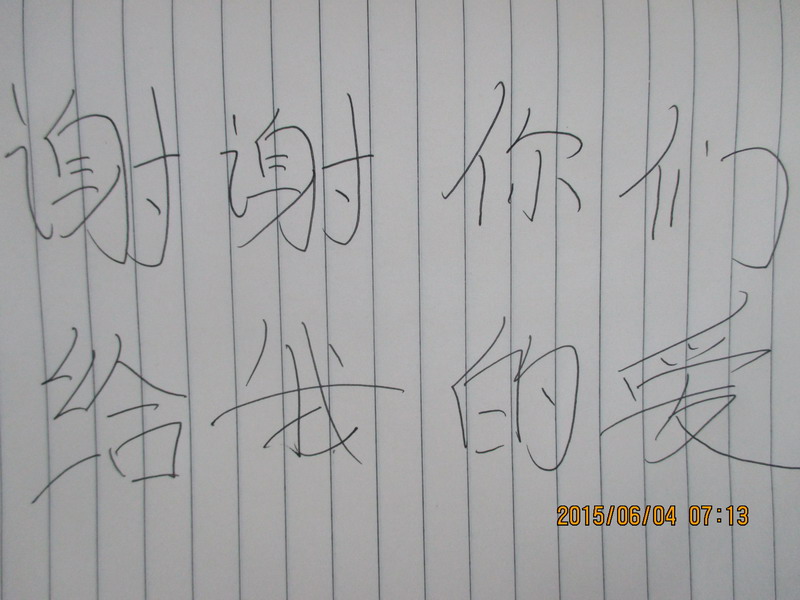 谢谢你们
给我的爱
2015/06/04 07:13